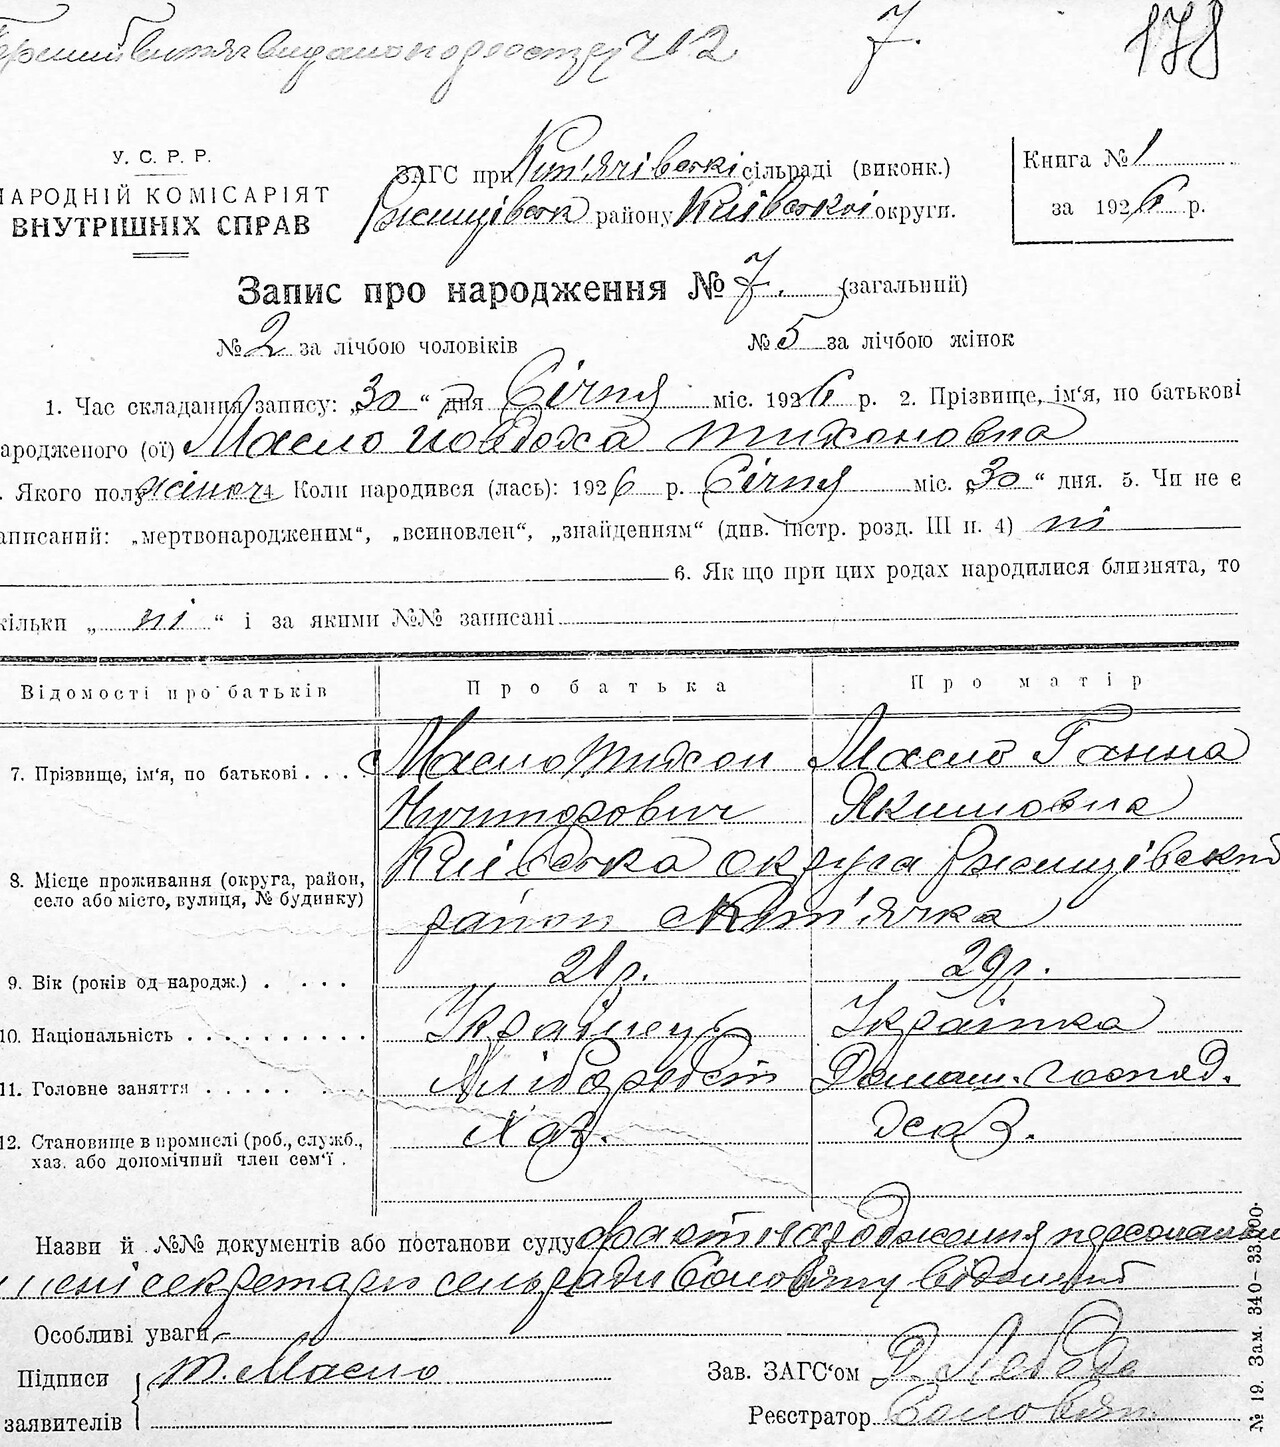 витяг видано по реєстру ч 12 7. 178
У. С. Р. Р.
НАРОДНІЙ КОМІСАРІЯТ
ВНУТРІШНІХ СПРАВ
ЗАГС при Кип'ячівські сільраді (виконк.)
Ржищівськ району Київської округи.
Книга № 1
за 1926 р.
Запис про народження № 7. (загальний)
№ 2 за лічбою чоловіків № 5 за лічбою жінок
1. Час складання запису: „30“ дня Січня міс. 1926 р. 2. Прізвище, ім‘я, по батькові
народженого (ої) Масло Йовдоха Тихоновна
. Якого полу жіноч 4 Коли народився (лась): 1926 р. Січня міс. „30“ дня. 5. Чи не є
записаний: „мертвонародженим“, „всиновлен“, „знайденням“ (див. інстр. розд. III п. 4) ні
6. Як що при цих родах народилися близнята, то
кільки „ ні “ і за якими №№ записані
Відомості про батьків Про батька Про матір
7. Прізвище, ім‘я, по батькові . . . Масло Тихон Масло Ганна
Ничипорович Якимовна
8. Місце проживання (округа, район, село або місто, вулиця, № будинку) Київська округа Ржищівский
район с Кип'ячка
9. Вік (років од народж.) . . . . 21 р. 29 р.
10. Національність . . . . . . . . . . Українець Українка
11. Головне заняття . . . . . . . . Хліборобст Домаш. господ.
12. Становище в промислі (роб., служб., хаз. або допомічний член сем‘ї . Хаз. Хаз.
Назви й №№ документів або постанови суду факт народження персонально
мені секретарю сельради Соловяну відомий
Особливі уваги -
Підписи Т. Масло Зав. ЗАГС‘ом Д. Лебедь
заявителів Реєстратор Соловян
№ 19. Зам. 340—33.000.